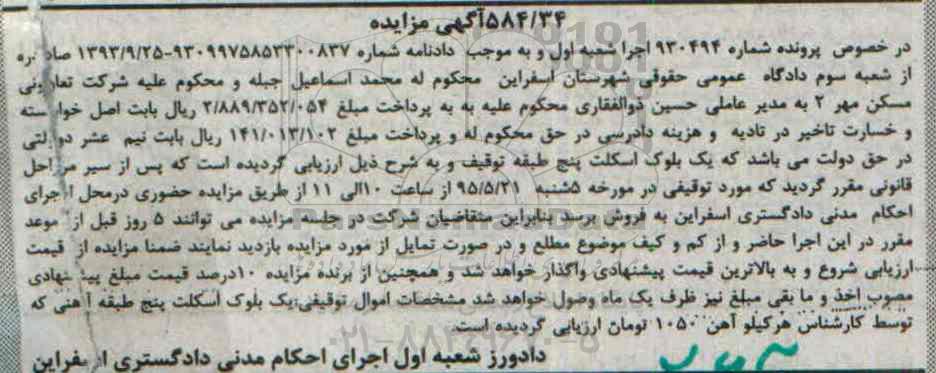 ۵۸۴/۳۴آگهی مزایده
در خصوص پرونده شماره ۹۳۰۴۹۴ اجرا شعبه اول و به موجب دادنامه شماره ۹۳۰۹۹۷۵۸۵۳۳۰۰۸۳۷-۱۳۹۳/۹/۲۵ صادره
از شعبه سوم دادگاه عمومی حقوقی شهرستان اسفراین محکوم له محمد اسماعیل جبله و محکوم علیه شرکت تعاونی
مسکن مهر ۲ به مدیر عاملی حسین ذوالفقاری محکوم علیه به به پرداخت مبلغ ۲/۸۸۹/۳۵۲/۰۵۴ ریال بابت اصل خواسته
و خسارت تاخیر در تادیه و هزینه دادرسی در حق محکوم له و پرداخت مبلغ ۱۴۱/۰۱۳/۱۰۲ ریال بابت نیم عشر دولتی
در حق دولت می باشد که یک بلوک اسکلت پنج طبقه توقیف و به شرح ذیل ارزیابی گردیده است که پس از سیر مراحل
قانونی مقرر گردید که مورد توقیفی در مورخه ۵شنبه ۹۵/۵/۲۱ از ساعت ۱۰الی ۱۱ از طریق مزایده حضوری درمحل اجرای
احکام مدنی دادگستری اسفراین به فروش برسد بنابراین متقاضیان شرکت در جلسه مزایده می توانند ۵ روز قبل از موعد
مقرر در این اجرا حاضر و از کم و کیف موضوع مطلع و در صورت تمایل از مورد مزایده بازدید نمایند ضمنا مزایده از قیمت
ارزیابی شروع و به بالاترین قیمت پیشنهادی واگذار خواهد شد و همچنین از برنده مزایده ۱۰درصد قیمت مبلغ پیشنهادی
مصوب اخذ و ما بقی مبلغ نیز ظرف یک ماه وصول خواهد شد مشخصات اموال توقیفی:یک بلوک اسکلت پنج طبقه آهنی که
توسط کارشناس هرکیلو آهن ۱۰۵۰ تومان ارزیابی گردیده است.
دادورز شعبه اول اجرای احکام مدنی دادگستری اسفراین
۰۲۱-۸۸۳۴۹۶۷۰-۵